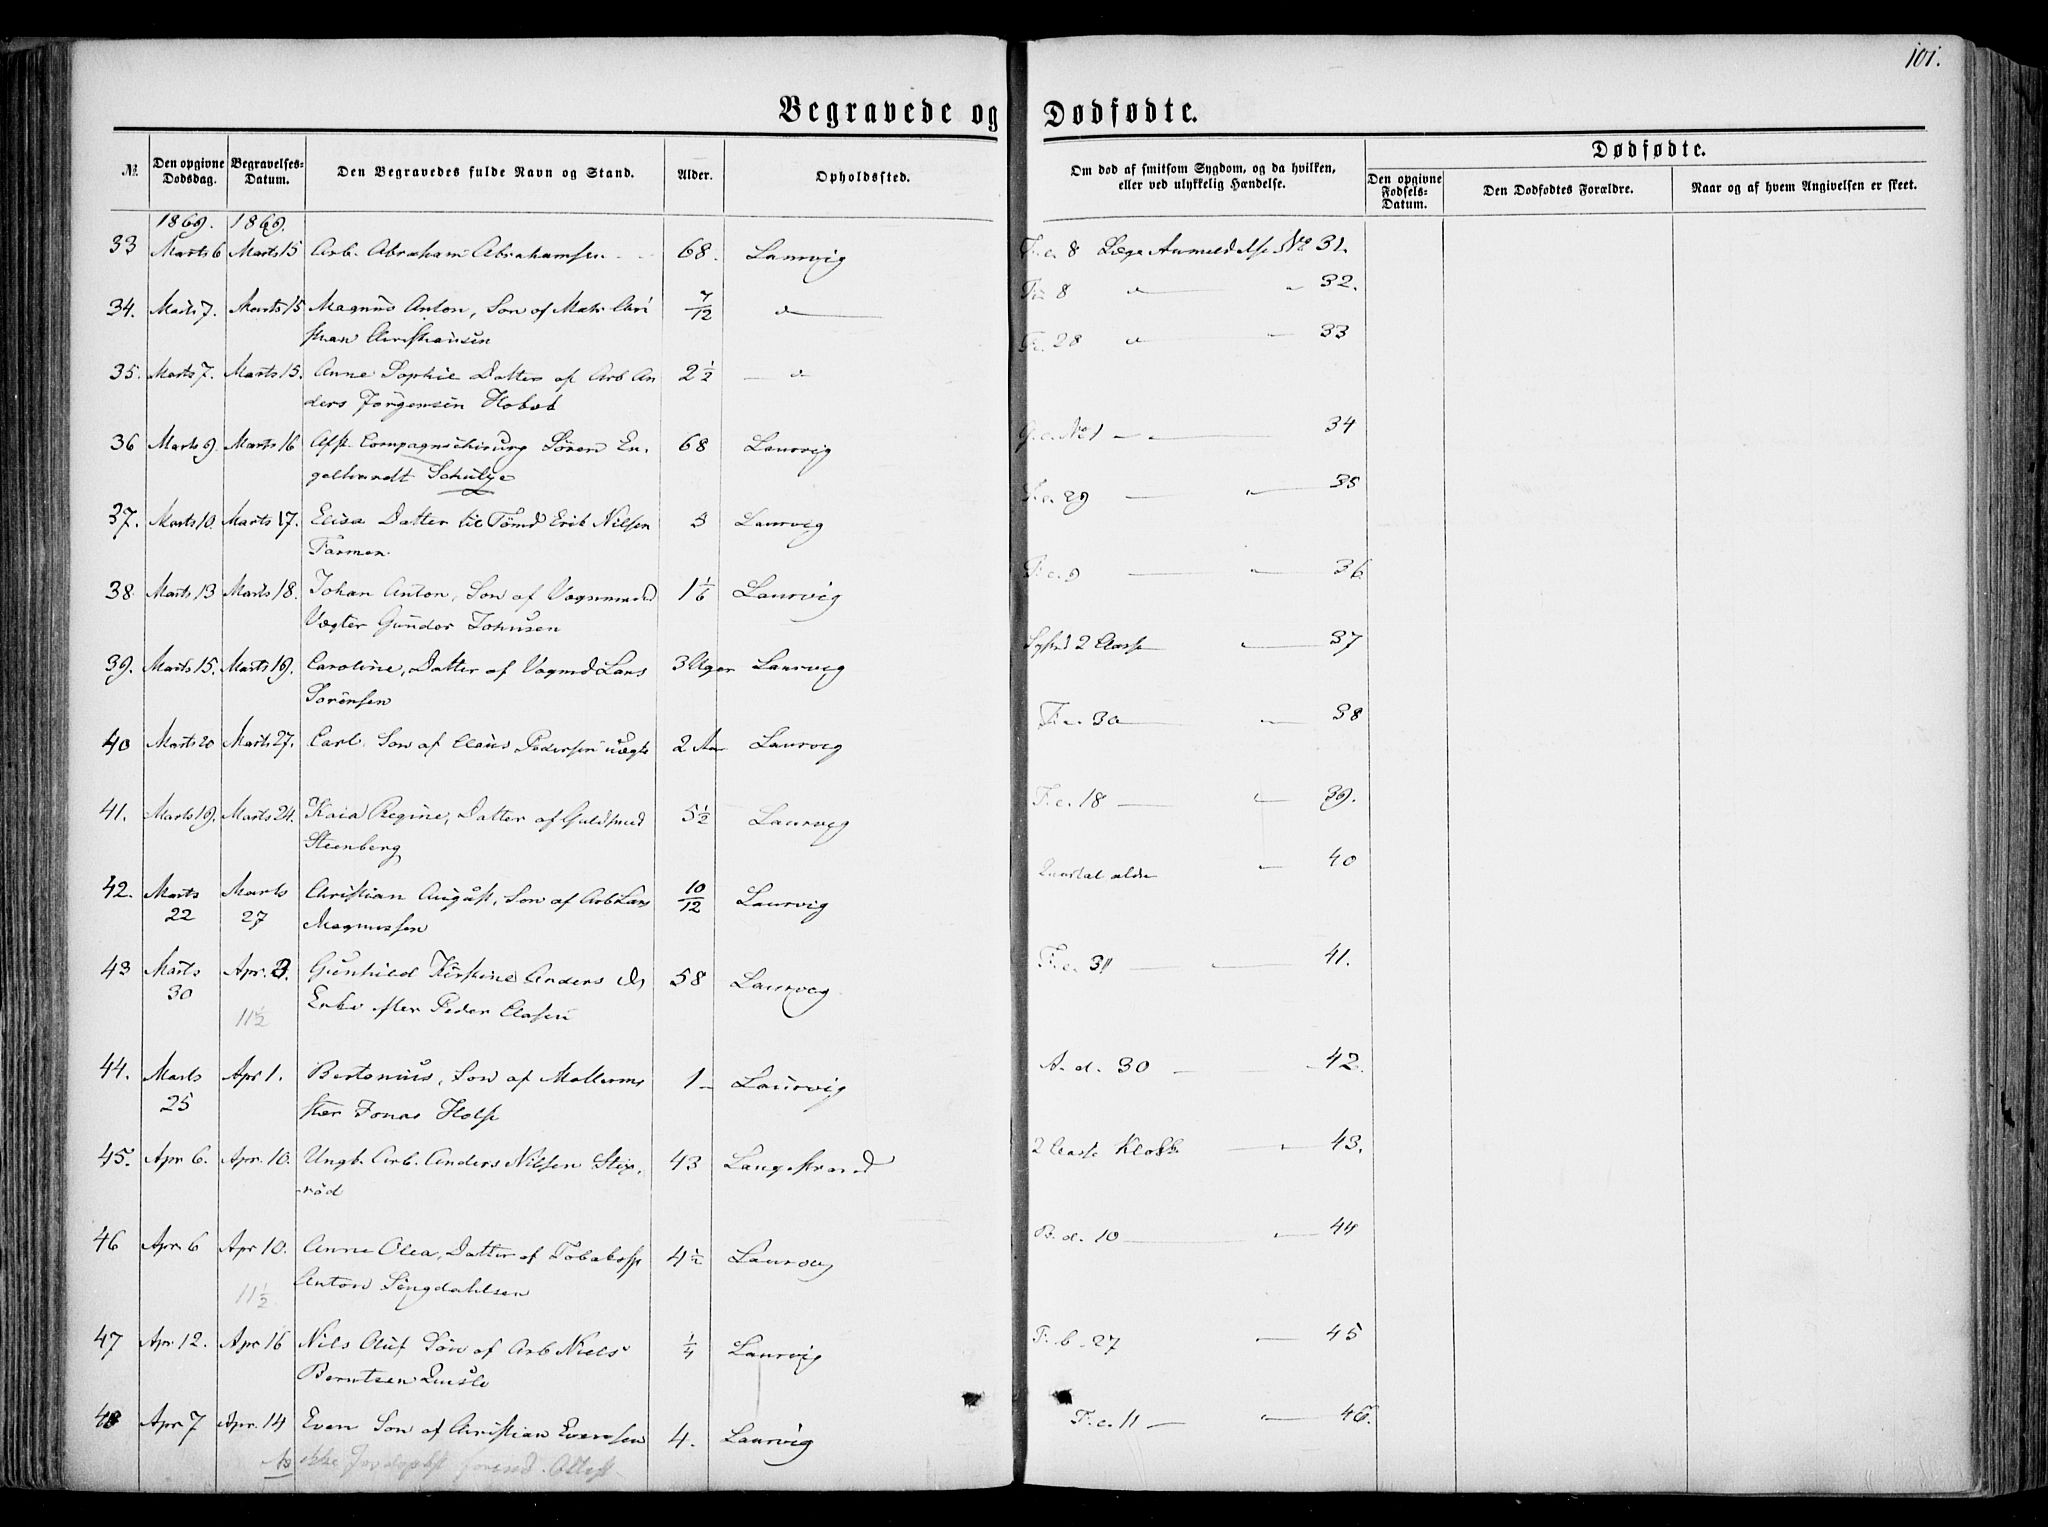 101.
Begravede og Dødfødte.
№
Den opgivne Dødsdag.
Begravelses-Datum.
Den Begravedes fulde Navn og Stand.
Alder.
Opholdssted.
Om død af smitsom Sygdom, og da hvilken, eller ved ulykkelig Hændelse.
Dødfødte.
Den opgivne Fødsels-Datum.
Den Dødfødtes Forældre.
Naar og af hvem Angivelsen er skeet.
1869. 1869.
33 Marts 6 Marts 15 Arb. Abraham Abrahamsen 68. Laurvig F. c. 8 Læge Anmeldelse No 31.
34. Marts 7. Marts 15 Magnus Anton, Søn af Matr. Chri 7/12 d 8 " " 32.
stian Christiansen
35. Marts 7. Marts 15. Anne Sophie Datter af Arb An 2 1/2 d 28 " 33
ders Jörgensen
36 Marts 9. Marts 16 Afsk. Compagnichirurg Sören En- 68 Laurvig No 1 34
gelhardt Schulze
37. Marts 10. Marts 17. Elisa Datter til Tömd Erik Nilsen 3 Laurvig 29 " 35
Farmen
38 Marts 13 Marts 18. Johan Anton, Søn af Vognmand 1 1/6 Laurvig F. c. 9 " 36
Vægter Gunder Johnsen
39. Marts 15. Marts 19. Caroline, Datter af Vogmd Lars 3 Uger Laurvig 2 Classe " 37
Sörensen
40 Marts 20 Marts 27. Carl. Søn af Claus Pedersen 2 Aar Laurvig F. c. 30 " 38
41. Marts 19. Marts 24. Kaia Regine, Datter af Guldsmed 5 1/2 Laurvig F. c. 18 " 39.
Steenberg
42. Marts 22 Marts 27 Christian August, Søn af Arb Lars 10/12 Laurvig " 40
Magnussen
43 Marts 30 Apr. 3. Gunhild Kirstine Anders d 58 Laurvig F. c. 31 " 41.
11 1/2 Enke efter Peder Clasen
44. Marts 25 Apr 1. Bertonius, Søn af Møllerme 1 Laurvig A. d. 30 42.
ster Jonas Holst
45. Apr 6. Apr. 10. Ungk. Arb. Anders Nilsen 43 Langestrand 2 Classe " 43.
röd
46 Apr. 6 Apr 10. Anne Olea, Datter af 4 1/2 Laurvig B. d. 10 " 44
11 1/2 Anton Singdahlsen
47 Apr. 12. Apr 16 Nils Oluf Søn af Arb Niels 1/4 Laurvig F. b. 27 " 45
Berntsen
48 Apr 7 Apr. 14 Even Søn af Christian Evensen 4. Laurvig F. c. 11 " 46.
ikke